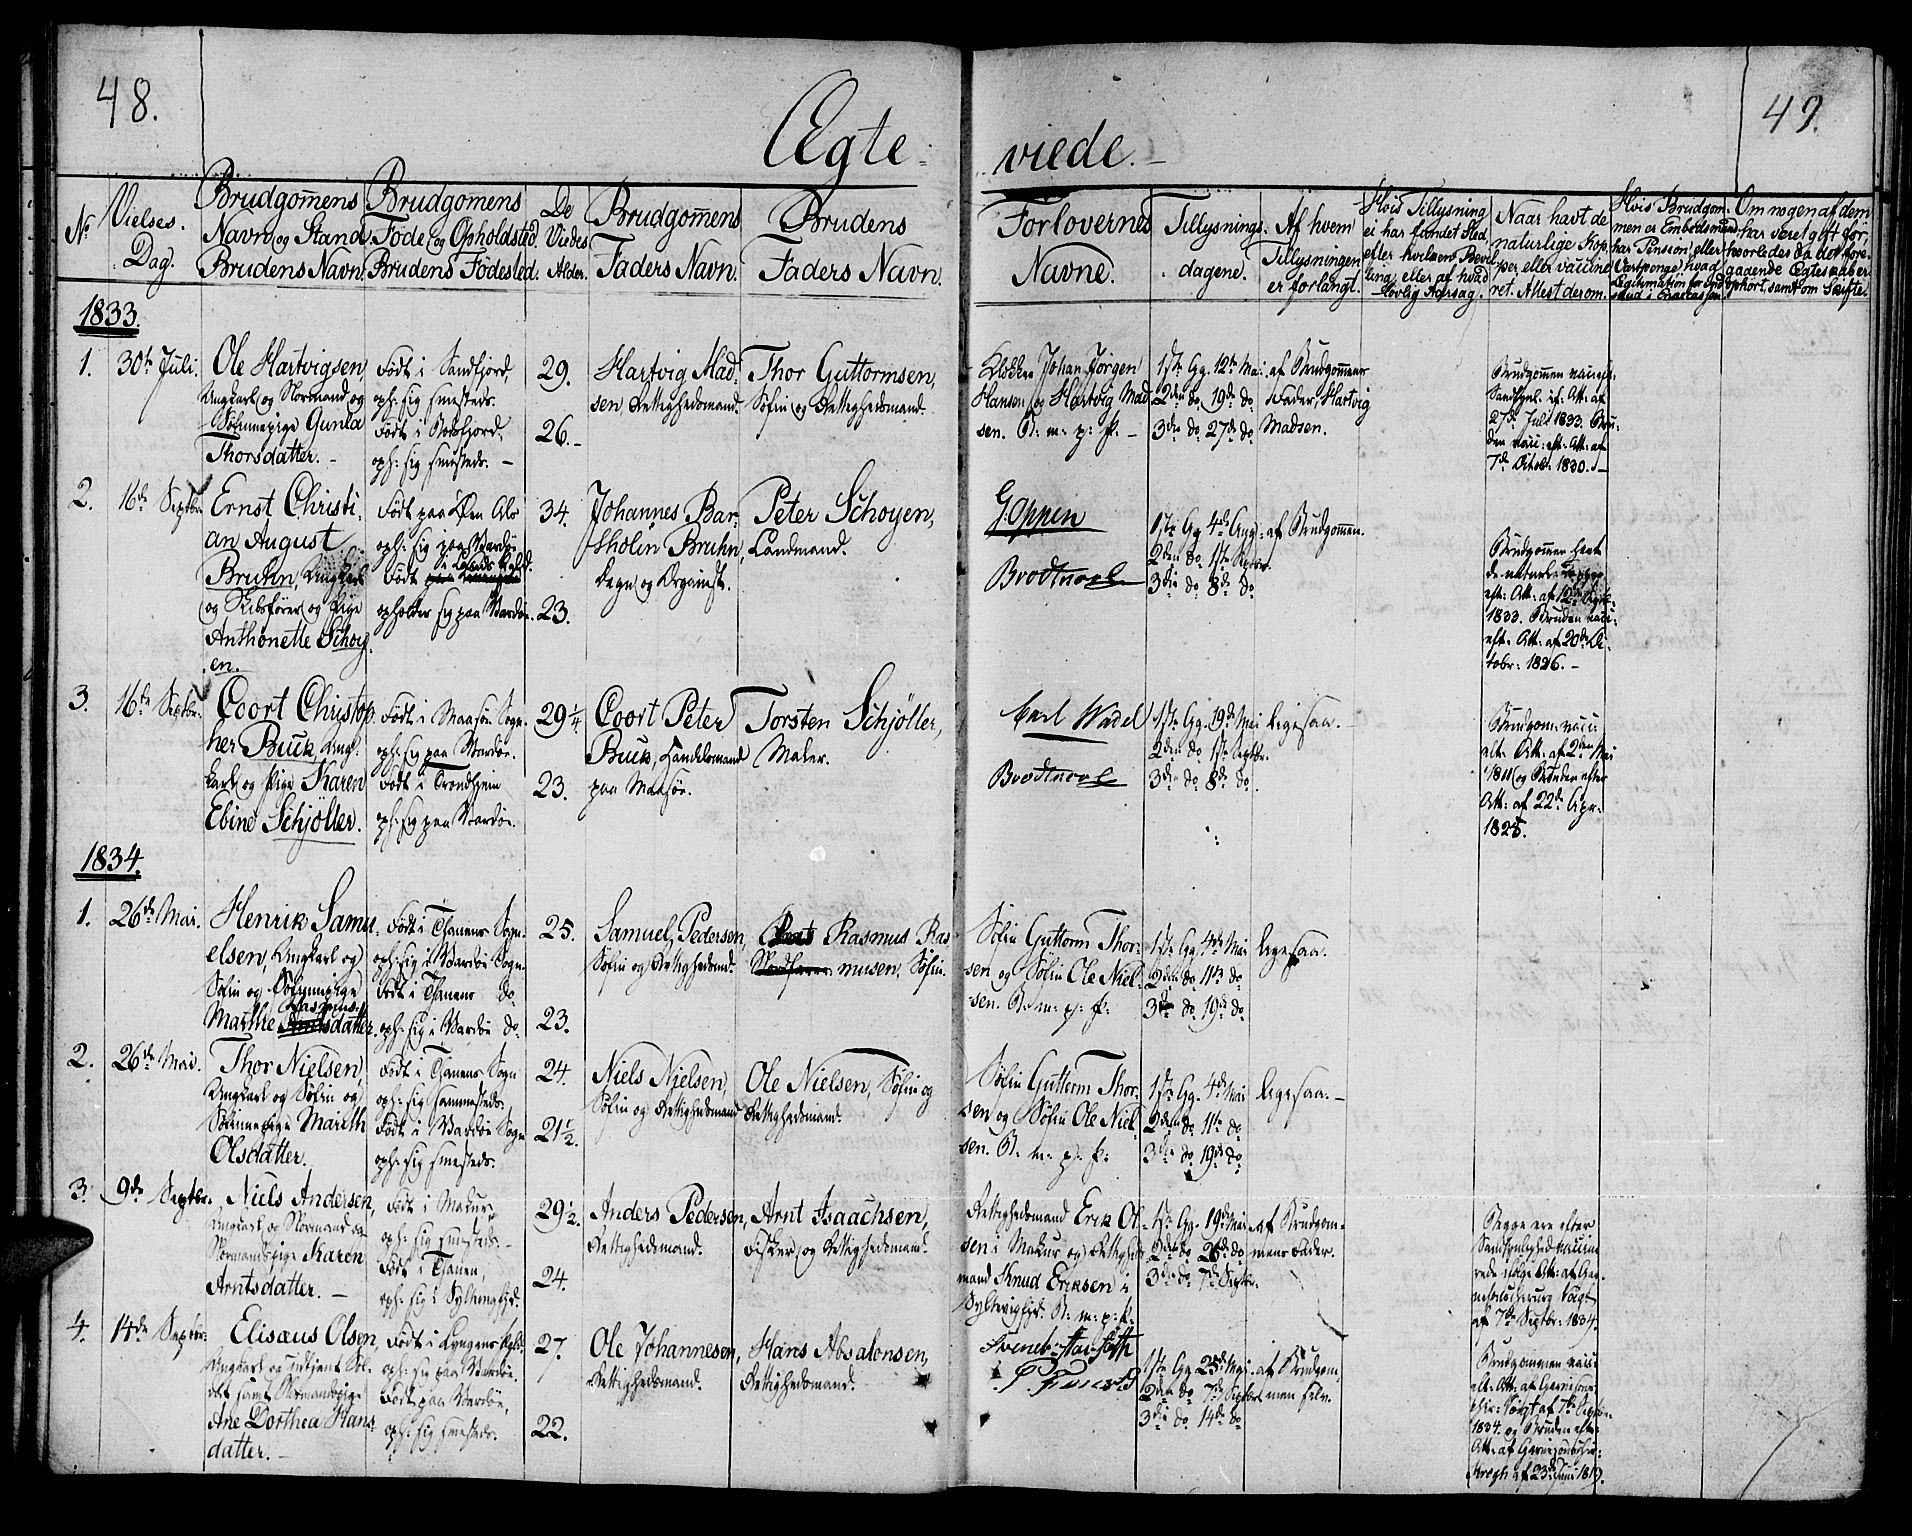 48.
49.
Ægte-
viede.-
No
Vielses.
Dag.
Brudgom̄ens
Navn og Stand
Brudens Navn.
Brudgom̄ens
Føde og Opholdsted.
Brudens Fødested.
De
Viedes
Alder.
Brudgom̄ens
Faders Navn.
Brudens
Faders Navn.
Forlovernes
Navne.
Tillysnings-
dagene.
Af hvem
Tillysningen
er forlangt.
Hvis Tillysning
ei har fundet Sted,
efter hvilken Bevil
ling, eller af hvad
lovlig Aarsag.
Naar havt de
naturlige Kop-
per eller vaccine
ret. Attest derom.
Hvis Brudgom-
men er Embedsmand
har Pension eller
Vartpenge, hvad
Om nogen af dem
har været gift før,
hvorledes da det fore-
gaaende Ægteskab er
ophørt, samt om Skifte
1833.
1.
30te Juli.
Ole Hartvigsen,
Ungkarl og Normand og
Søfinnepige Gunla
Thorsdatter. -
Født i Sandfjord,
oph: sig smesteds.
Født i
oph: sig smesteds. -
29.
26.-
Hartvig Mad-
sen, Rettighedsmand.
Thor Guttormsen,
Søfin og Rettighedsmand.
Klokker Johan Jörgen
Hansen og Hartvig Mad
sen. B: m: p: P. -
1ste Gg. 12te Mai
2den do 19de do
3die do 27de do
af Brudgommens
Fader, Hartvig
Madsen.
Brudgommen vacci.
Sandsynl. if: Att: af
27de Juli 1833. Bru-
den vacc: eft: Att: af
7de Octob: 1830. -
2.
16de Septbr.
Ernst Christi-
an August
Bruhn, Ungkarl
og Skibsfører og Pige
Anthonette Schøy-
en.
Født paa Øen Als
oph: sig paa Vardøe
Født
opholder sig paa Vardøe.
34.
23.
Johannes Bar-
tholin Bruhn,
Degn og Organist.
Peter Schøyen,
Landmand.
G. Oppen
Brodtkorb
1ste Gg 4de Aug:
2den do 1ste Septbr.
3die do 8de do
af Brudgommen.
Brudgommen havt
de naturl: Kopper
eft: Att: af 12te Sept-
1833. Bruden vacc:
eft: Att: af 20de Oc-
tobr: 1826. -
3.
16de Septbr.
Coort Christop
her Buck, Ung-
karl og Pige Karen
Ebine Schjöller.
Født i Maasøe Sogn
oph: sig paa Vardøe.
Født i Trondhjem
oph: sig paa Vardøe.
29 1/4.
23.
Coort Peter
Buck, Handelsmand
paa Maasøe.
Torsten Schjöller,
Maler.
Carl Wadel
Brodtkorb
1ste Gg. 19de Mai
2den do 1ste Septbr.
3die do 8de do.
ligesaa. -
Brudgom: vacci
eft: Att: af 2den Mai
1811 og Bruden efter
Att: af 22de Apr:
1825.
1834.
1.
26de Mai.
Henrik Samu-
elsen, Ungkarl og
Søfin og Søfinnepige
Rasmus-
Marthe Arntsdatter.
Født i Thanens Sogn.
oph: sig i Vardøe Sogn.
Født i Thanens do
oph: sig i Vardøe do.
25.
23.
Samuel Pedersen,
Søfin og Rettighedsmd.
Rasmus Ras
musen, Søfin.
Søfin Guttorm Thor-
sen og Søfin Ole Niel-
sen. B: m: p: P:
1ste Gg. 4de Mai
2den do 11te do
3die do 19de do
ligesaa.
2.
26de Mai.
Thor Nielsen,
Ungkarl og Søfin og
Søfinnepige Mareth
Olsdatter.
Født i Thanens Sogn
oph: sig sammesteds.
Født i Vardøe Sogn
oph: sig smesteds.
24.
21 1/2.
Niels Nielsen,
Søfin og Rettighedsmand
Ole Nielsen, Søfin og
Rettighedsmand.
Søfin Guttorm Thor-
sen og Søfin Ole Niel-
sen. B: m: p: P:
1ste Gg. 4de Mai
2den do 11te do
3die do 19de do
ligesaa. -
3.
9de Septbr.
Niels Andersen,
Ungkarl og Normand og
Normandspige Karen
Arntsdatter. -
Født i Makur,
oph: sig smesteds. -
Født i Thanen,
oph: sig i Syltevigfjd.
29 1/2.
24.
Anders Pedersen,
Rettighedsmand.
Arnt Isaachsen,
Fisker og Rettighedsmand.
Rettighedsmand Erik Ol-
sen i Makur og Rettigheds
mand Knud Eriksen i
Syltevigfjd. B: m: p: P:
1ste Gg. 19de Mai
2den do 26de do
3die do 7de Septbr.
af Brudgom-
mens Fader.
Begge ere efter
Sandsynlighed vaccine
rede ifølge Att: af Gar-
nisonschirurg Vogt
af 7de Septbr: 1834.
4.
14de Septbr:
Elisæus Olsen,
Ungkarl og udtjent Sol-
dat samt Normandspige
Ane Dorthea Hans
datter. -
Født i Lyngens Pgld.
oph: sig paa Vardøe.
Født paa Vardøe,
oph: sig smesteds.
27.
22.
Ole Johannesen,
Rettighedsmand.
Hans Absalonsen,
Rettighedsmand.
1ste Gg 25de Mai
2den do 7de Septbr.
3die do 14de do
af Brudgom
men selv.
Brudgommen vacci:
eft: Att: af Garnisons
chir: Vogt af 7de Septbr.
1834. og Bruden eft:
Att: af Garnisonschir:
Krogh af 23de Juni 1819.